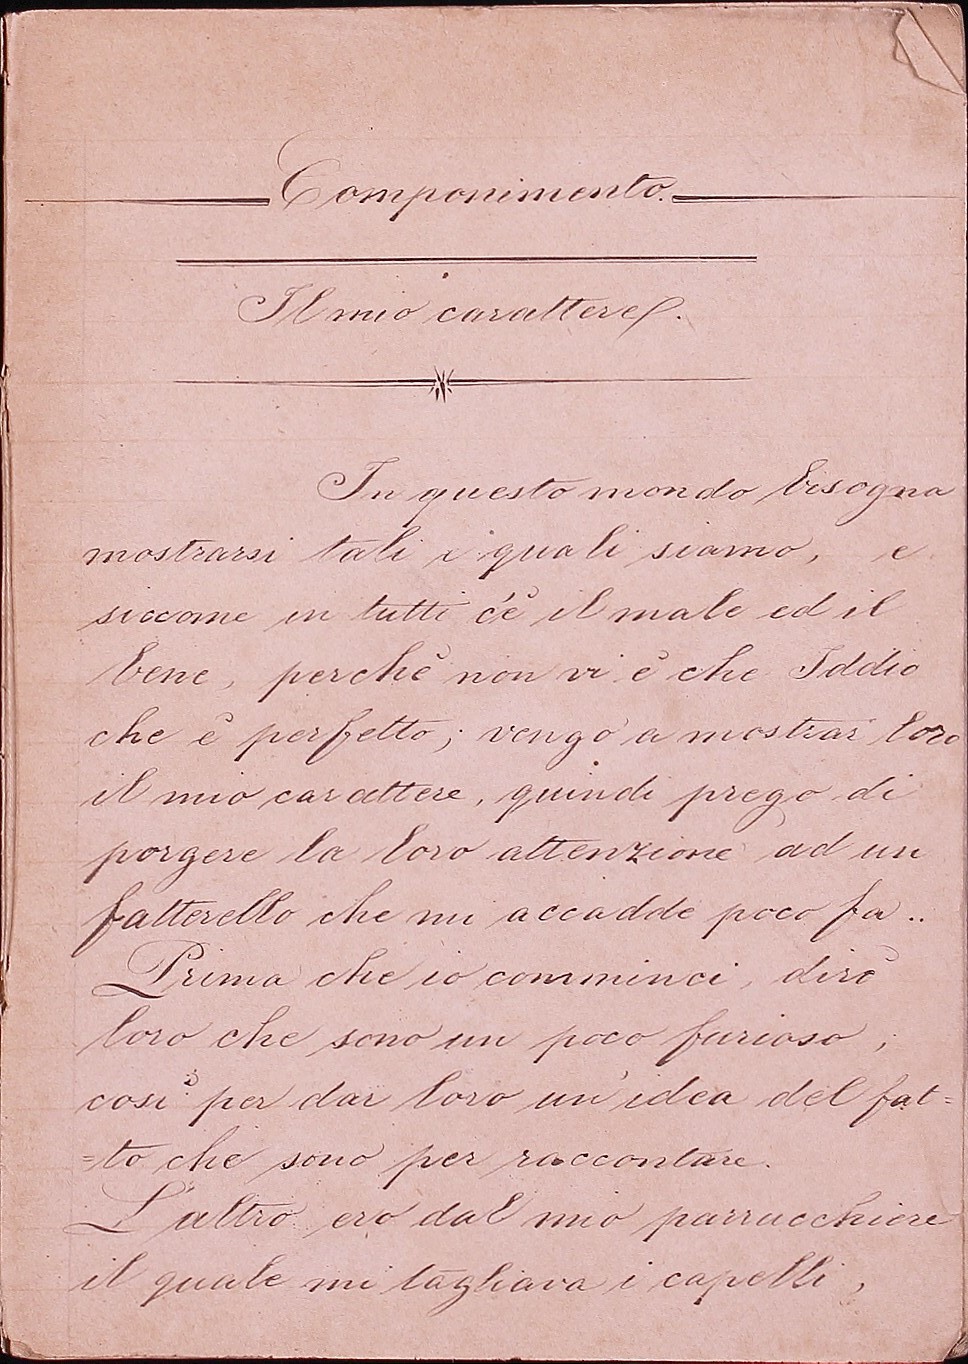 Componimento.
Il mio carattere.
In questo mondo bisogna
mostrarsi tali e quali siamo, e
siccome in tutti c'è il male ed il
bene, perchè non vi è che Iddio
che è perfetto; vengo a mostrar loro
il mio carattere, quindi prego di
porgere la loro attenzione ad un
fatterello che mi accadde poco fa..
Prima che io comminci, dirò
loro che sono un poco furioso,
così per dar loro un'idea del fat=
=to che sono per raccontare.
L'altro ero dal mio parrucchiere
il quale mi tagliava i capelli,